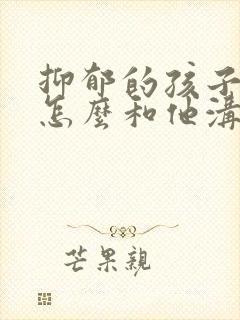 抑郁的孩子
怎麼和他溝
芒果親